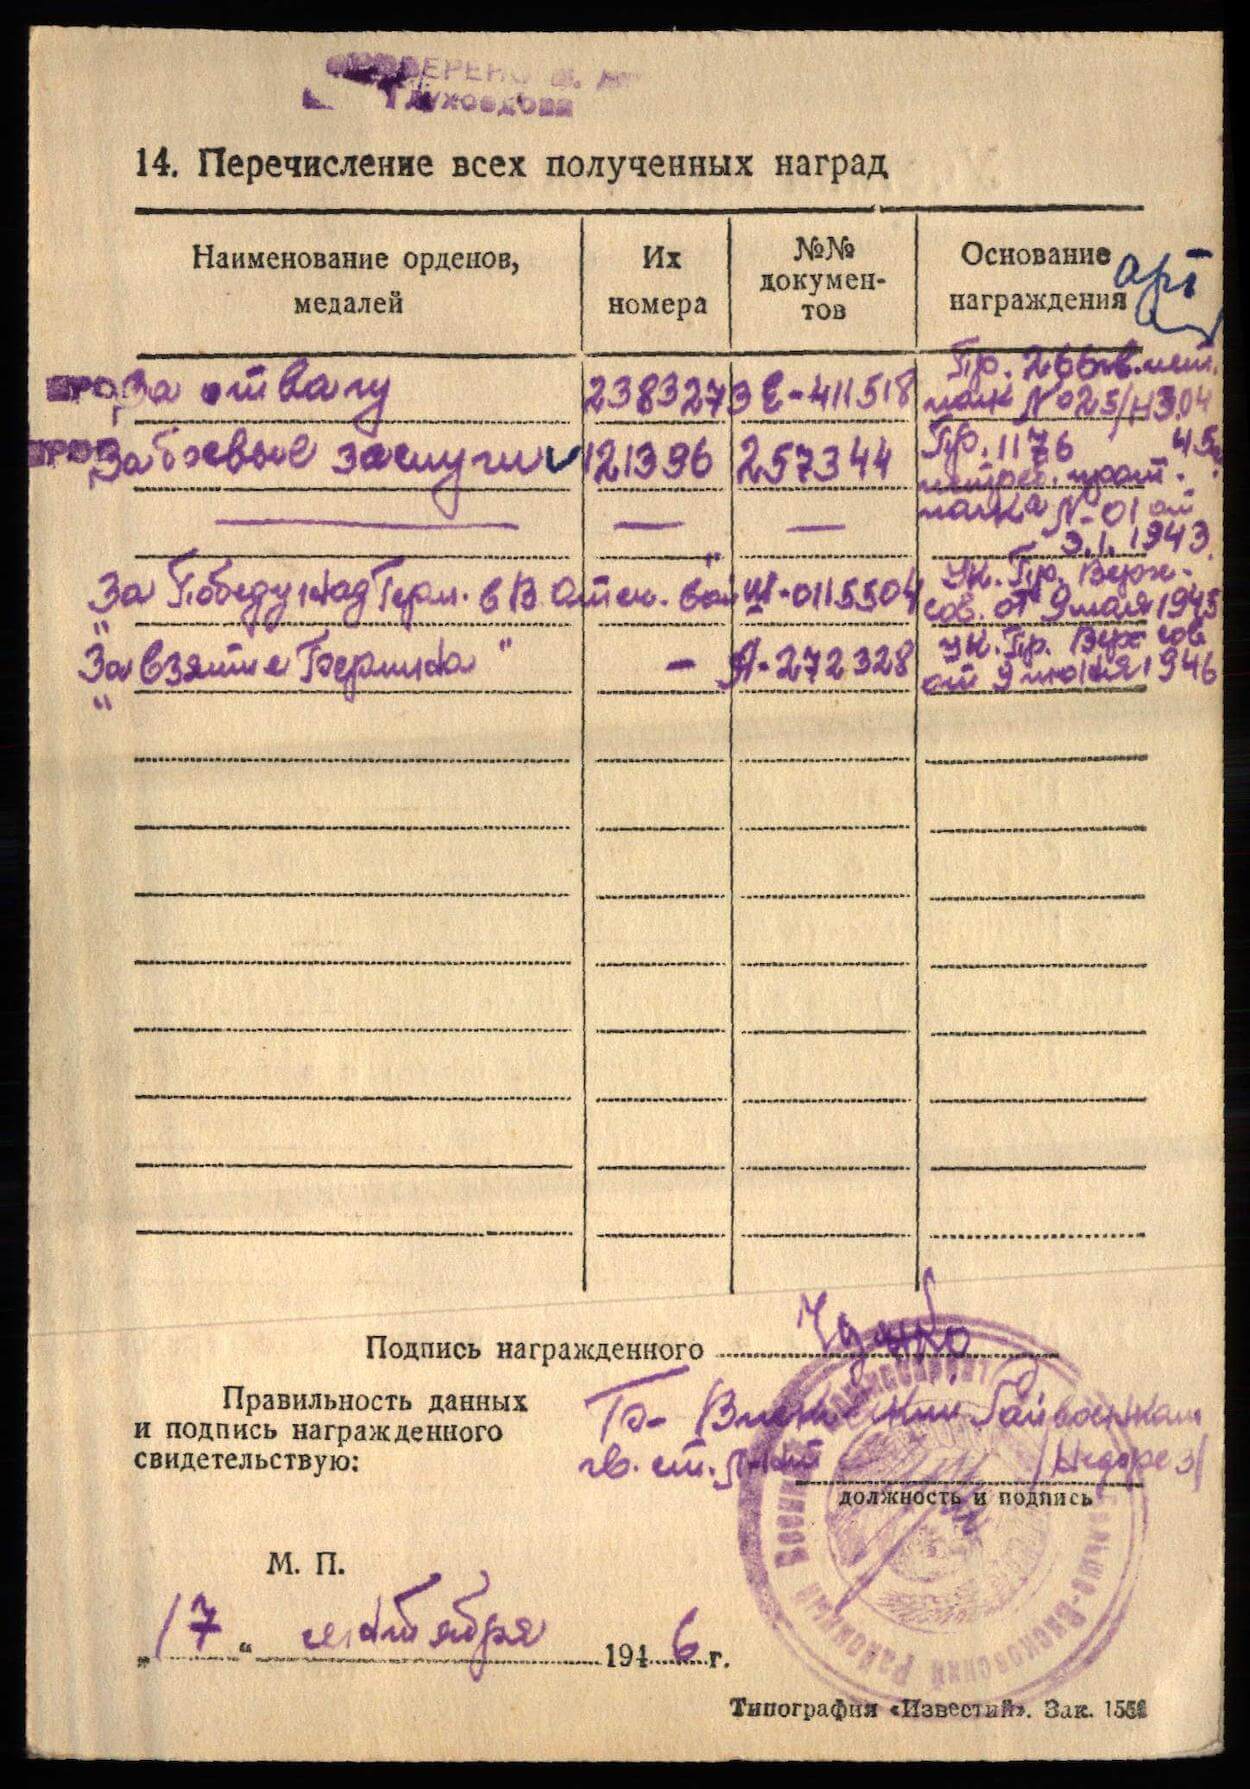 Глуховцова
14. Перечисление всех полученных наград
Наименование орденов, медалей
Их номера
№№ докумен-тов
Основание награждения
арт
За отвагу 2383273 Е-411518 Пр. 266 гв. истр.
полк № 25/н 3.04
45г
За боевые заслуги 121396 257344 Пр. 1176
истреб. прот.
полка № 01 от
9.1.1943
"За Победу над Герм. в В. Отеч. вой" Ш-0115504 Ук. Пр. Верх.
сов. от 9 мая 1945
"За взятие Берлина" - А-272328 Ук. Пр. Верх сов
от 9 июня 1946
Подпись награжденного
Правильность данных
и подпись награжденного
свидетельствую:
Райвоенком
гв. ст. л-нт
должность и подпись
М. П.
„17“ сентября 1946 г.
Районный Военный Комиссариат
Типография «Известий». Зак. 155